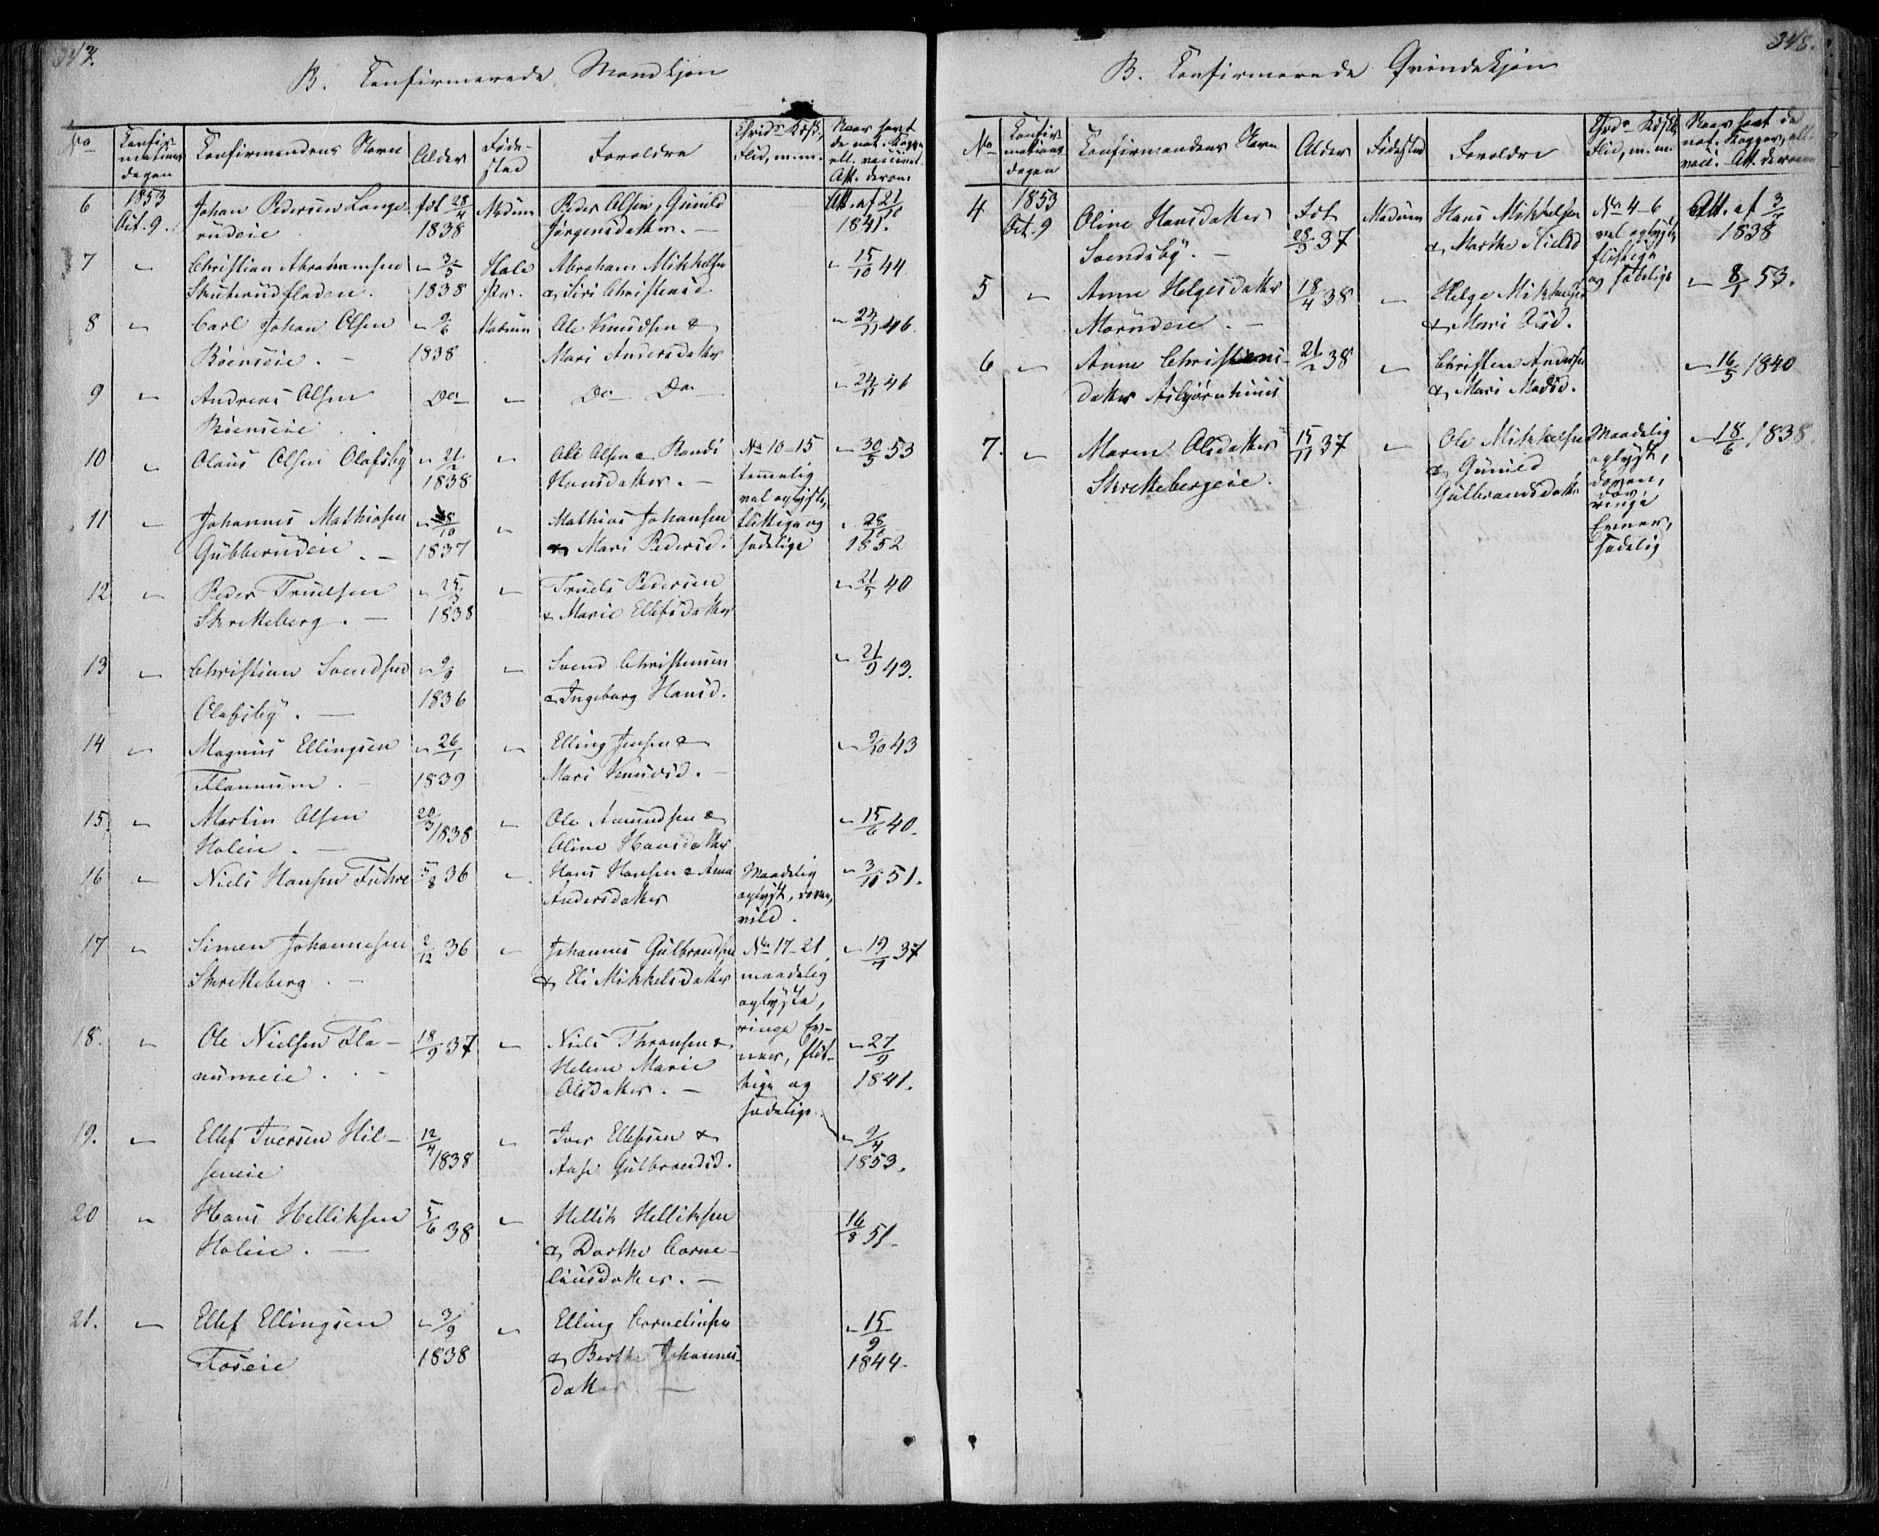 B. Confirmerede, Mandkjøn
No
Confir-
mations
dagen
Confirmandens Navn
Alder
Føde-
sted
Forældre
Flid, m.m.
Naar havt
de nat. Kopper
ell. vaccineret
Att. derom
6
1853
Oct. 9.
Johan Pedersen Lange-
rudeie
føt 28/4
1838
Modum
Peder Olsen, Gunild
Jørgensdatter. —
Att. af 21/10
1841.
7
"
Christian Abrahamsen
Skuterudfladen.
" 3/5
1838
Abraham Mikkelsen
& Siri Christensd.
" 15/10 44
8
"
Carl Johan Olsen
Bøenseie. —
" 9/6
1838
Modum
Ole Knudsen &
Mari Andersdatter
" 24/11 46.
9
"
Andreas Olsen
Bøenseie
Do
"
Do — Do —
" 24/11 46
10
"
Olaus Olsen Olafsby
" 21/2
1838
"
Ole Olsen & Randi
Hansdatter. —
No 10-15
temmelig
vel oplyste,
flittige og
sædelige
" 30/5 53
11
"
Johannes Mathiasen
Gubberudeie. —
" 28/10
1837
"
Mathias Johansen
& Mari Pedersd.
" 28/10
1852
12
"
Peder Truelsen
Skretteberg. —
" 25/3
1838
"
Truels Pedersen
& Marie Ellefsdatter
" 21/5 40
13
"
Christian Svendsen
Olafsby. —
" 9/9
1836
"
Svend Christensen
& Ingeborg Hansd.
" 21/9 43.
14
"
Magnus Ellingsen
Flannum. —
" 26/1
1839
"
Elling Jensen &
Mari Knudsd. —
" 9/10 43
15.
"
Martin Olsen
Holeie. —
20/3 1838
"
Ole Amundsen &
Oline Hansdatter
" 15/6 40.
16
"
Niels Hansen Fuhre
5/8 36
"
Hans Hansen & Anne
Andersdatter
Maadelig
oplyst, doven,
vild.
" 3/11 51.
17
"
Simen Johannesen
Skretteberg. —
2/12 36
"
Johannes Gulbrandsen
& Eli Mikkelsdatter
No 17-21
maadelig
oplyste,
ringe Ev-
ner, flit-
tige og
sædelige.
" 19/7 37
18.
"
Ole Nielsen Fla-
numeie. —
18/9 37
"
Niels Thronsen &
Helene Marie
Olsdatter. —
" 27/9
1841.
19.
"
Ellef Iversen Hil-
seneie
12/4 1838
"
Iver Ellefsen &
Aase Gulbrandsd.
" 9/4
1853.
20
"
Hans Helliksen
Holeie. —
5/6 38
"
Hellik Helliksen
& Dorthe Corne-
liusdatter. —
16/8 51.
21.
"
Ellef Ellingsen
Foseie
" 3/9
1838
"
Elling Corneliusen
& Berthe Johannes-
datter. —
" 15/9
1844.
348.
B. Confirmerede Qvindekjøn
No
Confir-
mations
dagen
Confirmandens Navn
Alder
Fødested
Forældre
Flid, m.m.
Naar havt de
nat. Kopper, ell.
vacc. Att. derom
4
1853
Oct. 9
Oline Hansdatter
Svendsby. —
Føt
28/8 37
Modum
Hans Mikkelsen
& Marthe Nielsd
No 4-6
vel oplyste,
flittige
og sædelige
Att. af 3/7
1838
5
"
Anne Helgesdatter
Morudeie. —
18/4 38
"
Helge Mikkelsen
& Mari
" 8/7 53.
6
"
Anne Christens-
datter Asbjørnhuus
21/2 38
"
Christen Andersen
& Mari Madsd.
" 16/5 1840
7.
"
Maren Olsdatter
Skrettebergeie.
15/11 37
"
Ole Mikkelsen
& Gunild
Gulbrandsdatter
Maadelig
oplyst,
doven,
ringe
Evner,
sædelig
" 18/6 1838.